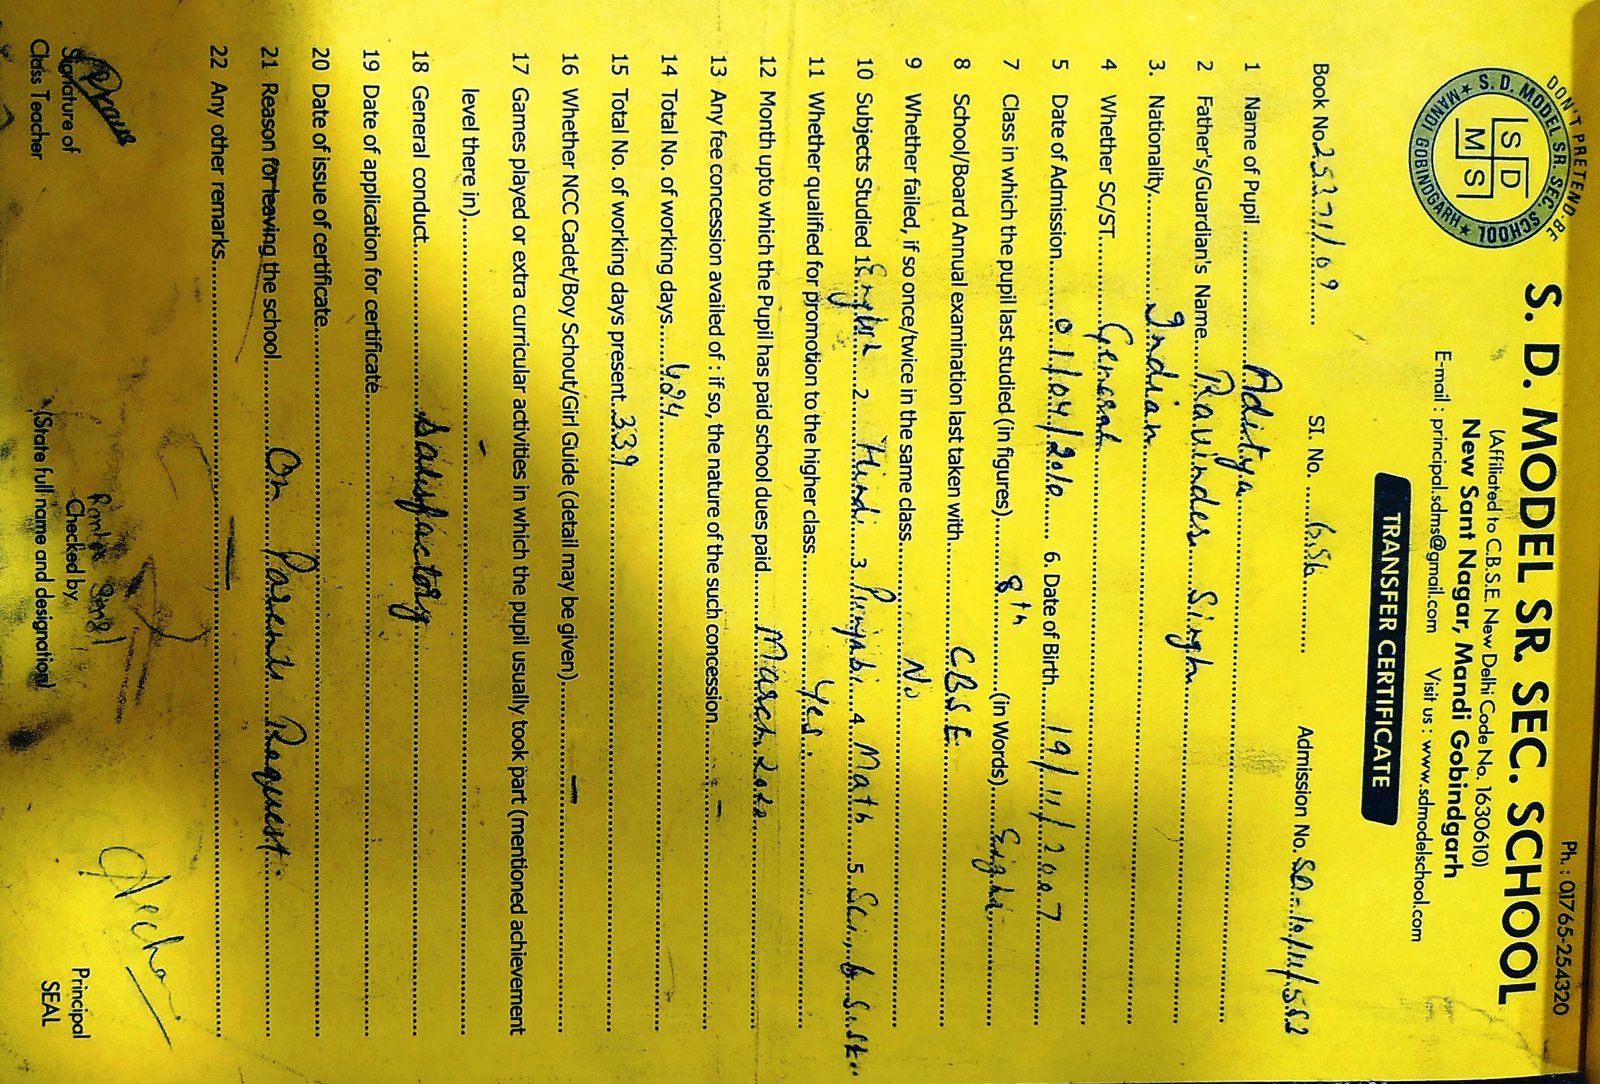 Ph. : 01765-254320
DON'T PRETEND-BE
S. D. MODEL SR. SEC. SCHOOL
★ MANDI GOBINDGARH ★
S D
M S
S. D. MODEL SR. SEC. SCHOOL
(Affiliated to C.B.S.E. New Delhi Code No. 1630610)
New Sant Nagar, Mandi Gobindgarh
E-mail : principal.sdms@gmail.com Visit us : www.sdmodelschool.com
TRANSFER CERTIFICATE
Book No. 25371/09 Sl. No. 656 Admission No. SD-10/11/552
1 Name of Pupil Aditya
2 Father's/Guardian's Name Ravinder Singh
3. Nationality Indian
4 Whether SC/ST General
5 Date of Admission 01/04/2010 6. Date of Birth 19/11/2007
7 Class in which the pupil last studied (in figures) 8th (in Words) Eight
8 School/Board Annual examination last taken with C.B.S.E.
9 Whether failed, if so once/twice in the same class No
10 Subjects Studied 1. English 2. Hindi 3. Punjabi 4. Math 5. Sci. 6. S.St.
11 Whether qualified for promotion to the higher class Yes.
12 Month upto which the Pupil has paid school dues paid March
13 Any fee concession availed of : if so, the nature of the such concession -
14 Total No. of working days 424
15 Total No. of working days present 339
16 Whether NCC Cadet/Boy Schout/Girl Guide (detail may be given) -
17 Games played or extra curricular activities in which the pupil usually took part (mentioned achievement
level there in) -
18 General conduct Satisfactory
19 Date of application for certificate
20 Date of issue of certificate
21 Reason for leaving the school On Parents Request.
22 Any other remarks —
Signature of
Class Teacher
Checked by
(State full name and designation)
Principal
SEAL